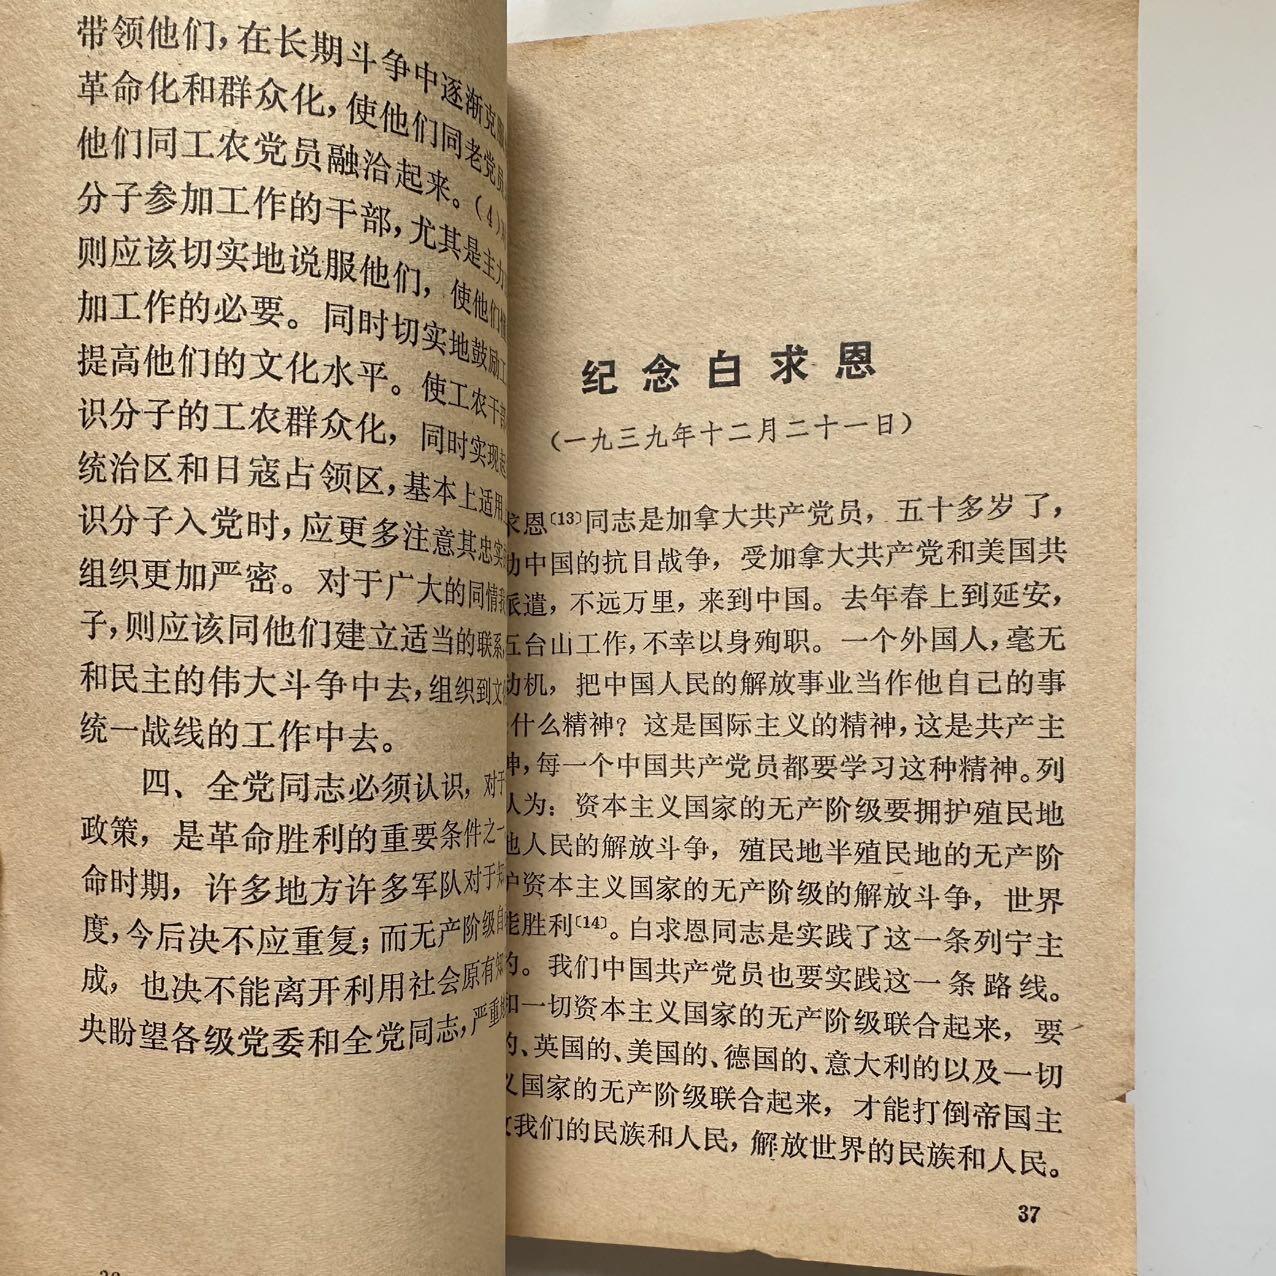 带领他们，在长期斗争中逐渐克
革命化和群众化，使他们同老党员
他们同工农党员融洽起来。（4）
分子参加工作的干部，尤其是主力
则应该切实地说服他们，使他们
加工作的必要。同时切实地鼓励工
提高他们的文化水平。使工农干部
识分子的工农群众化，同时实现
统治区和日寇占领区，基本上适用
识分子入党时，应更多注意其忠实
组织更加严密。对于广大的同情
子，则应该同他们建立适当的联系，
和民主的伟大斗争中去，组织到文
统一战线的工作中去。
四、全党同志必须认识，对于
政策，是革命胜利的重要条件之一
命时期，许多地方许多军队对于知
度，今后决不应重复；而无产阶级自
成，也决不能离开利用社会原有知
央盼望各级党委和全党同志，严重
纪念白求恩
（一九三九年十二月二十一日）
求恩〔13〕同志是加拿大共产党员，五十多岁了，
动中国的抗日战争，受加拿大共产党和美国共
派遣，不远万里，来到中国。去年春上到延安，
五台山工作，不幸以身殉职。一个外国人，毫无
动机，把中国人民的解放事业当作他自己的事
什么精神？这是国际主义的精神，这是共产主
神，每一个中国共产党员都要学习这种精神。列
认为：资本主义国家的无产阶级要拥护殖民地
地人民的解放斗争，殖民地半殖民地的无产阶
护资本主义国家的无产阶级的解放斗争，世界
能胜利〔14〕。白求恩同志是实践了这一条列宁主
的。我们中国共产党员也要实践这一条路线。
和一切资本主义国家的无产阶级联合起来，要
的、英国的、美国的、德国的、意大利的以及一切
义国家的无产阶级联合起来，才能打倒帝国主
放我们的民族和人民，解放世界的民族和人民。
37